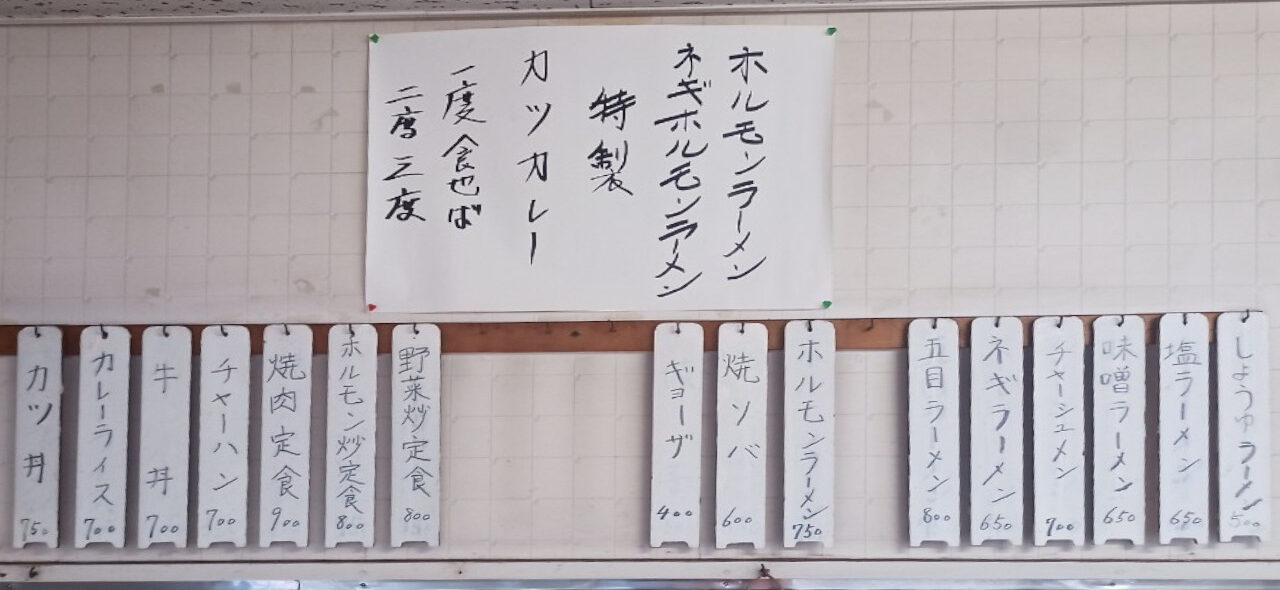 ホルモンラーメン
ネギホルモンラーメン
特製
カツカレー
一度食也ば
二度三度
しょうゆラーメン 500
塩ラーメン 650
味噌ラーメン 650
チャーシュメン 700
ネギラーメン 650
五目ラーメン 800
ホルモンラーメン 750
焼ソバ 600
ギョーザ 400
野菜炒定食 800
ホルモン炒定食 800
焼肉定食 900
チャーハン 700
牛丼 700
カレーライス 700
カツ丼 750